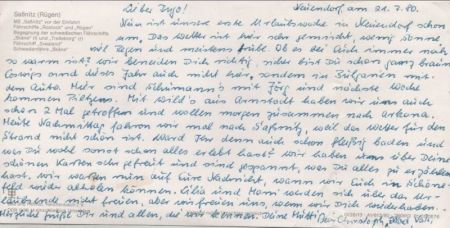 Saßnitz (Rügen)
MS „Saßnitz" vor der Einfahrt
Fährschiffe „Rostock" und „Rügen"
Begegnung der schwedischen Fährschiffe
„Skåne" (l) und „Trelleborg" (r)
Fährschiff „Svealand"
Schwedenfähre „Skåne"
Neuendorf am 21.7.80.
Lieber Ingo!
Nun ist unsere erste Urlaubswoche in Neuendorf schon
um. Das Wetter ist hier sehr gemischt, wenig Sonne,
viel Regen und meistens trübe. Ob es bei Euch immer
so warm ist? Wir beneiden Dich richtig, sicher bist Du schon ganz braun.
sind dieses Jahr auch nicht hier, sondern in Bulgarien mit
dem Auto. Hier sind Schümann's mit Jörg und nächste Woche
kommen. Mit aus Arnstadt haben wir uns auch
schon 2 Mal getroffen und wollen morgen zusammen nach Arkona.
Heute Nachmittag fahren wir mal nach Saßnitz, weil das Wetter für den
Strand nicht schön ist. Warst Du denn auch schon fleißig baden und
was Du wohl sonst schon alles erlebt hast? Wir haben uns über Deine
schönen Karten sehr gefreut und sind gespannt, was Du alles zu erzählen
hast. Wir warten nun auf Eure Nachricht, wann wir Euch in Schöne-
feld wieder abholen können. und Mani werden sich über das Ur-
laubsende nicht freuen, aber wir freuen uns, wenn wir Dich wiederhaben.
Herzliche Grüße Dir und allen, die wir kennen. Deine Mutti,
Dein Christoph, Vati,